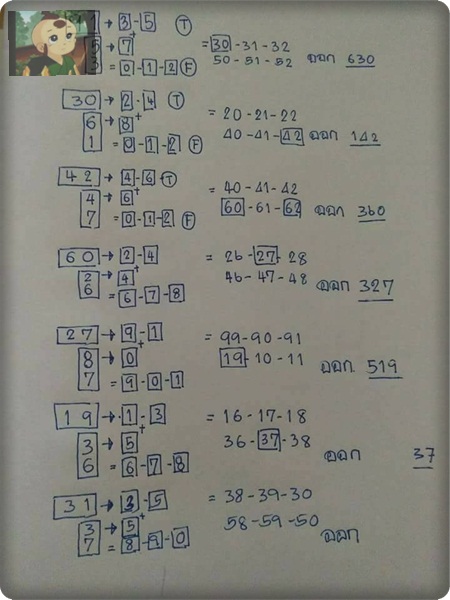 1 → 3 - 5 T
5 → 7 + = 30 - 31 - 32
3 = 0 - 1 - 2 F 50 - 51 - 52 ออก 630
30 → 2 - 4 T
6 → 8 + = 20 - 21 - 22
1 = 0 - 1 - 2 F 40 - 41 - 42 ออก 142
42 → 4 - 6 T
4 → 6 + = 40 - 41 - 42
7 = 0 - 1 - 2 F 60 - 61 - 62 ออก 360
60 → 2 - 4 = 26 - 27 - 28
2 → 4 + 46 - 47 - 48
6 = 6 - 7 - 8 ออก 327
27 → 9 - 1 = 99 - 90 - 91
8 → 0 + 19 - 10 - 11
7 = 9 - 0 - 1 ออก 519
19 → 1 - 3 = 16 - 17 - 18
3 → 5 + 36 - 37 - 38
6 = 6 - 7 - 8 ออก 37
31 → 3 - 5 = 38 - 39 - 30
3 → 5 + 58 - 59 - 50
7 = 8 - 9 - 0 ออก